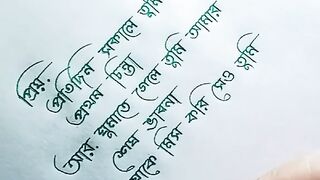 প্রিয়:
প্রতিদিন সকালে তুমি
প্রথম চিন্তা
আর. ঘুমাতে গেলে তুমি আমার
শেষ ভাবনা
মিস করি সেও তুমি